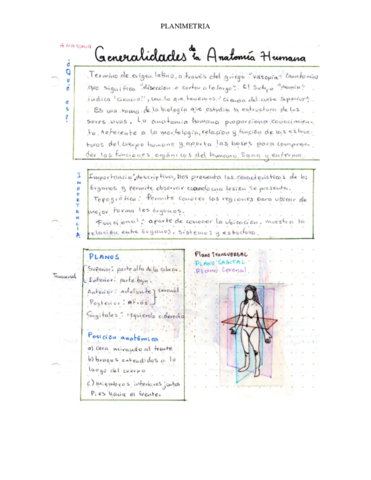 PLANIMETRIA
Generalidades de la Anatomía Humana
¿Qué es?
Termino de origen latino, a través del griego
que significa "disección o cortar a lo largo". El Sufijo
indica "ciencia", con lo que tenemos "ciencia del corte superior".
Es una rama de la biología que estudia la estructura de los
seres vivos. La anatomía humana proporciona conocimien-
to, referente a la morfología, relación y función de las estruc-
turas del cuerpo humano y aporta las bases para compren-
der las funciones, orgánicas del humano sano y enfermo.
IMPORTANCIA
Importancia: descriptiva, nos presenta las características de los
órganos y permite observar cuando una lesión lo presenta.
Topográfica: Permite conocer las regiones para ubicar de
mejor forma los órganos.
Funcional: aparte de conocer la ubicación, muestra la
relación entre órganos, sistemas y estados.
PLANOS
Superior: parte alta de la cabeza.
Inferior: parte baja.
Transversal
Anterior: adelante
Posterior: atrás
coronal
Sagitales: izquierdo o derecho
Posición anatómica
a) Cara mirando al frente
b) brazos extendidos a lo
largo del cuerpo
c) miembros inferiores juntos
Pies hacia el frente.
PLANO TRANSVERSAL
PLANO SAGITAL
PLANO CORONAL